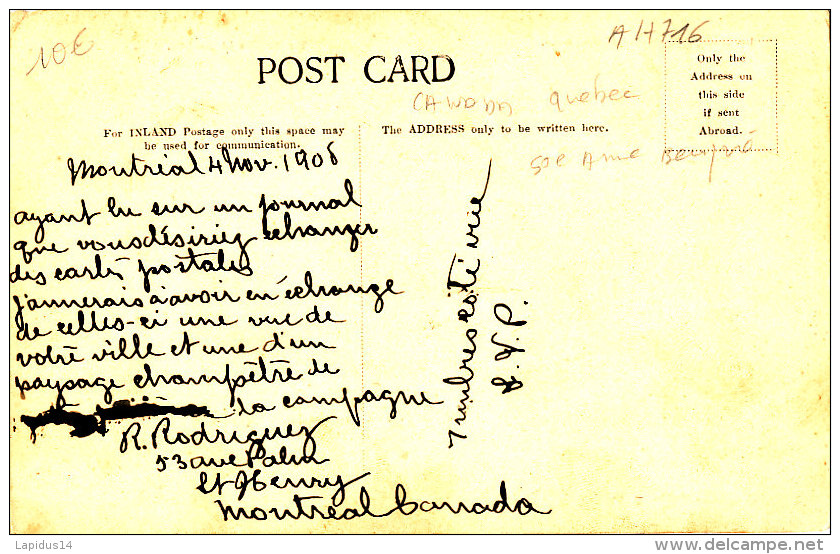 10€
AH716
POST CARD
Only the
Address on
this side
if sent
Abroad.
CANADA Quebec
For INLAND Postage only this space may
be used for communication.
The ADDRESS only to be written here.
Ste Anne Beaupré
Montréal 4 Nov. 1908
ayant lu sur un journal
que vous désiriez echanger
des cartes postales
j'aimerais à avoir en échange
de celles-ci une vue de
votre ville et une d'un
paysage champêtre de
la campagne
R. Rodriguez
53 ave Palm
St Henry
Montreal Canada
Timbres côté vue
S.V.P.
Lapidus14
www.delcampe.net